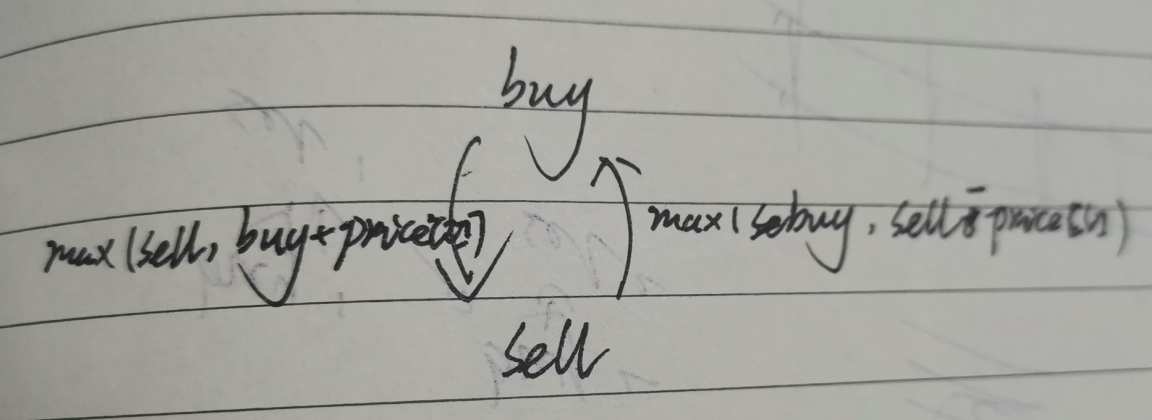 buy
max(sell, buy+price[i])
max(buy, sell-price[i])
sell